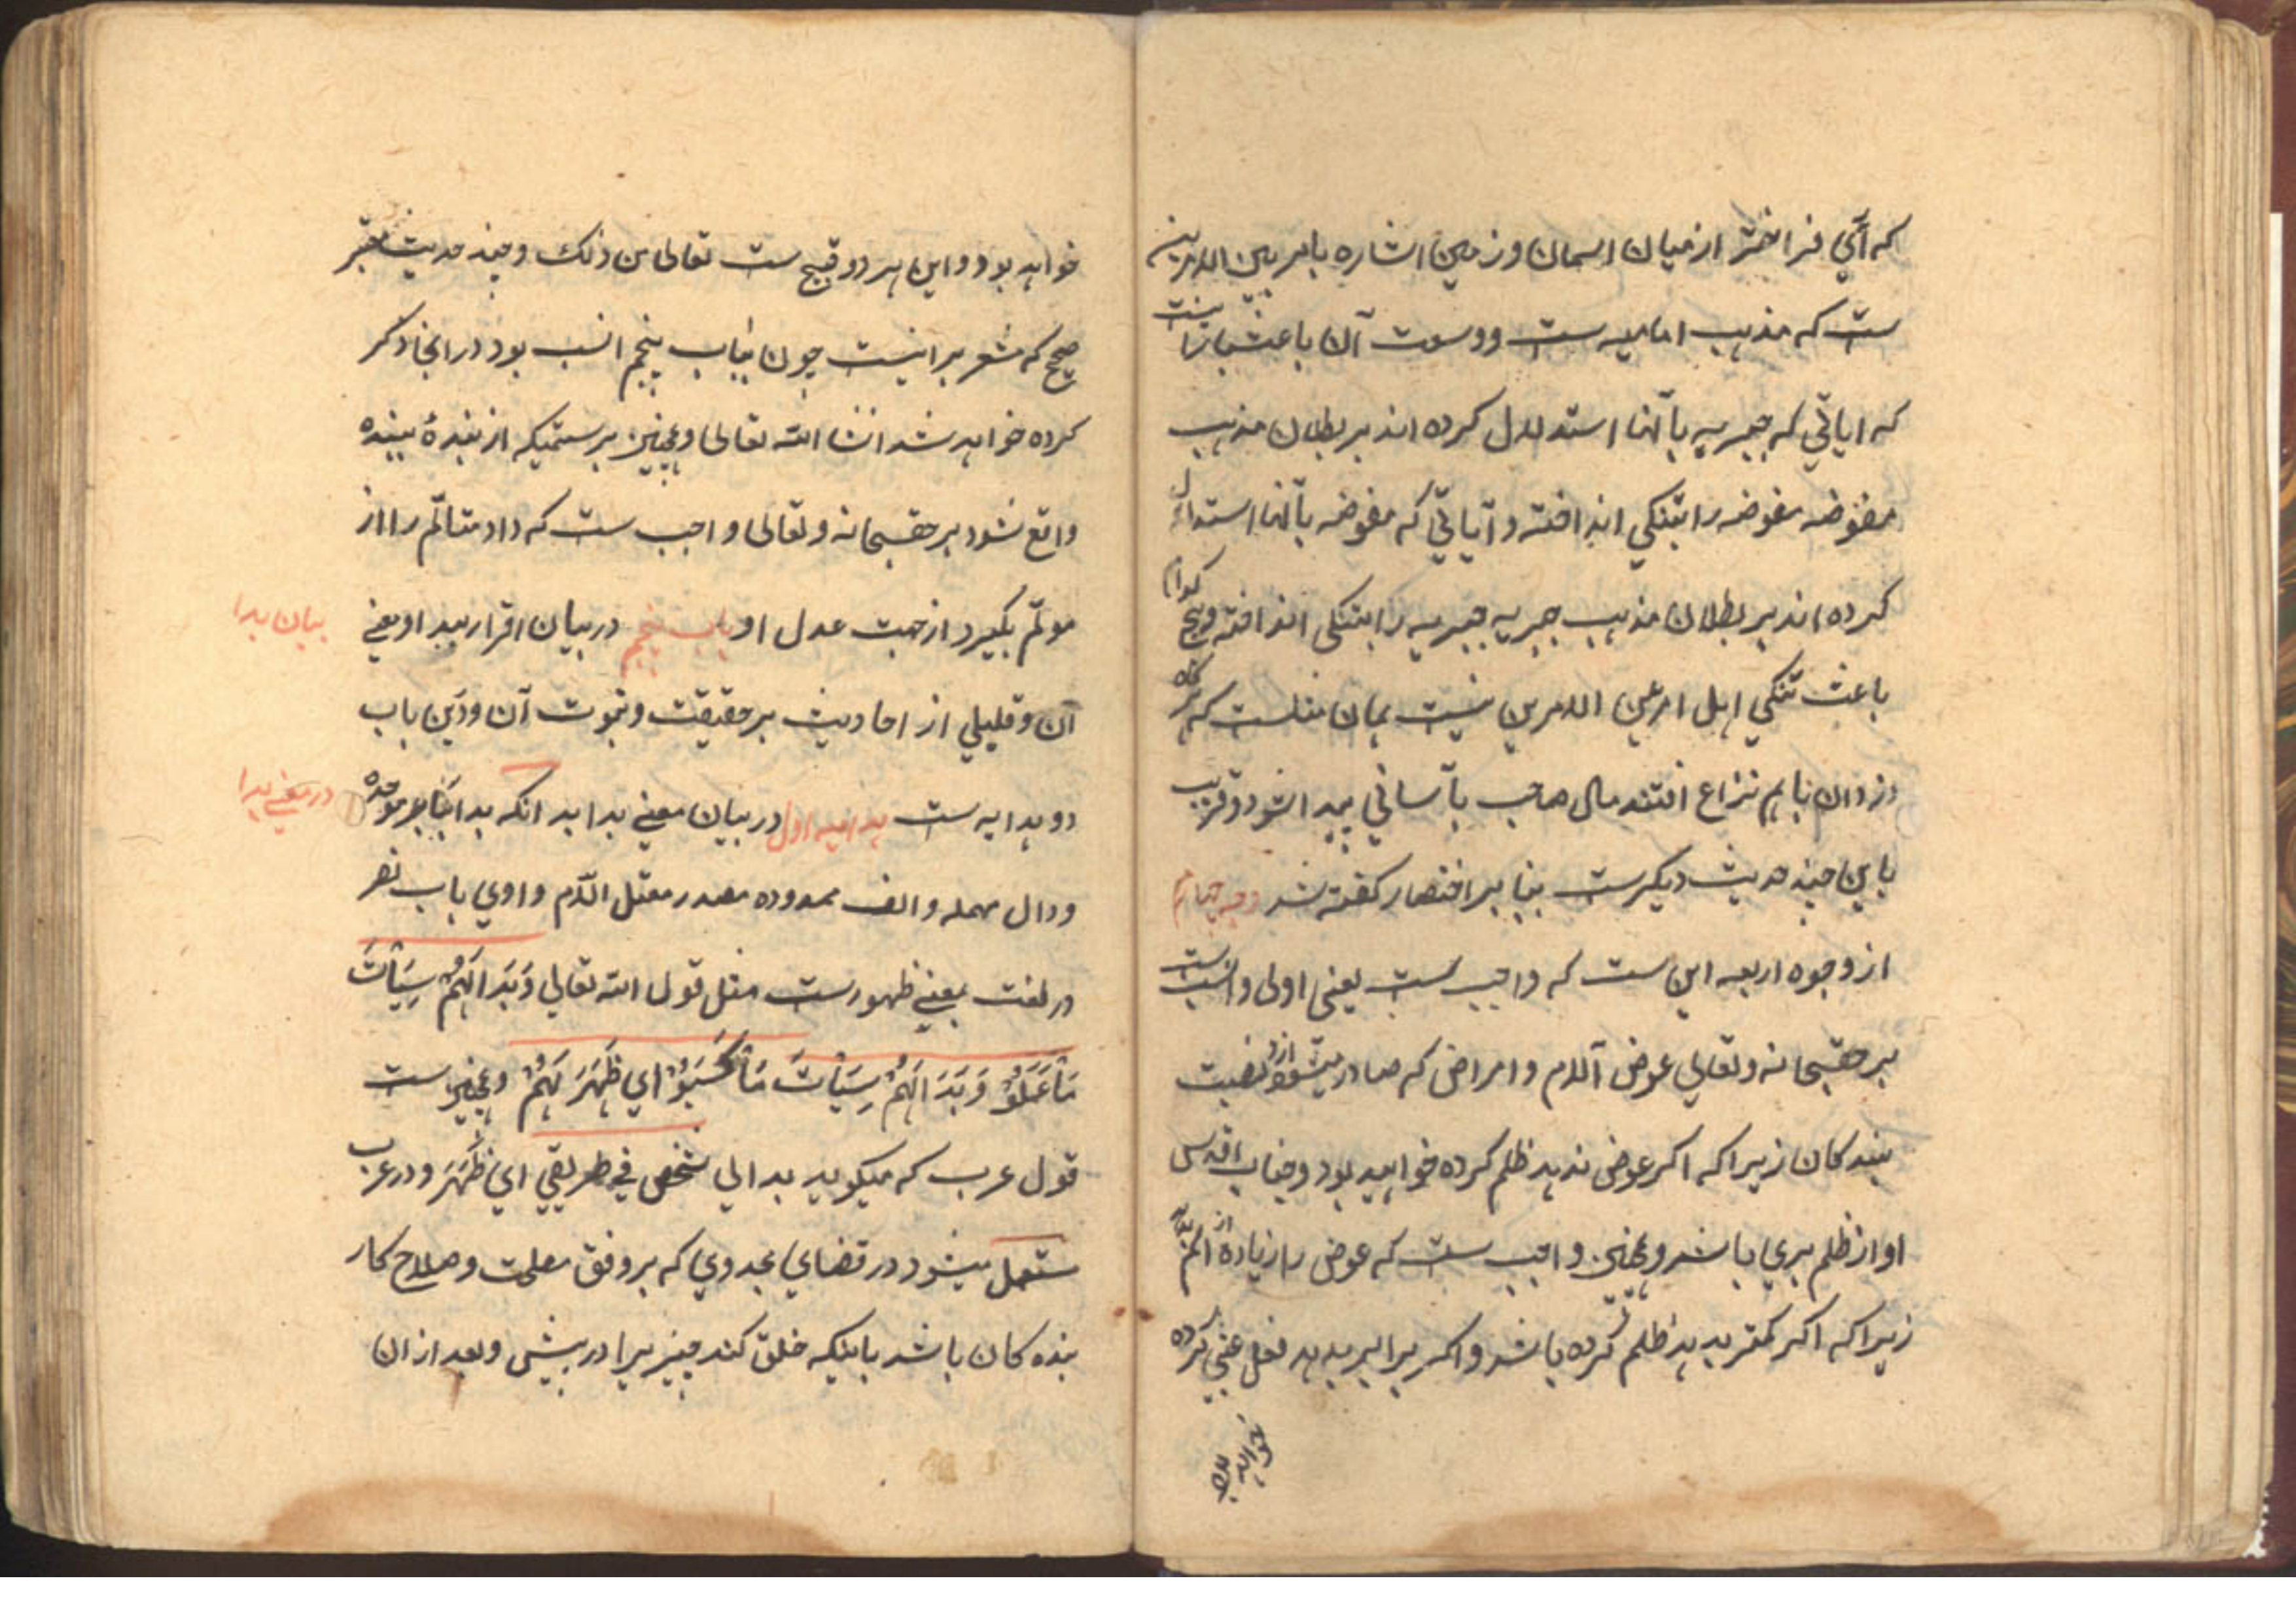 که آئی فراختر از میان اسمان و زمین اشاره بامر بین الامرین
ست که مذهب امامیه ست و وسعت آن باعث
که ایاتی که جبریه بآنها استدلال کرده اند بر بطلان مذهب
مفوضه مفوضه را بتنکی انداخته و آیاتی که مفوضه بآنها استدلال
کرده اند بر بطلان مذهب جبریه جبریه را بتنکی انداخته و هیچ کدام
باعث تنکی اهل امر بین الامرین نیست همان مثلست که هر کاه
دزدان باهم نزاع افتند مال صاحب بآسانی پیدا شود و قریب
باین چند حدیث دیکرست بنا بر اختصار کفته شد وجه چهارم
از وجوه اربعه این ست که واجب ست یعنی اولی و انسب ست
بر حقسبحانه و تعالی عوض آلام و امراض که صادر میشود ازو نصیبت
بندکان زیرا که اکر عوض ندهد ظلم کرده خواهد بود و جناب اقدس
او از ظلم بری باشد و همچنین واجب ست که عوض را زیاده از الم بدهد
زیرا که اکر کمتر بدهد ظلم کرده باشد و اکر برابر بدهد فعل عبثی کرده
خواهد بود و این هر دو قبیح ست تعالی من ذلک و چند حدیث معتبر
صحیح که مشعر بر اینست چون بباب پنجم انسب بود در انجا ذکر
کرده خواهد شد انشا الله تعالی و همچنین بر ستمیکه از بندهٔ ببنده
واقع شود بر حقسبحانه و تعالی واجب ست که داد متالّم را از
مولّم بکیرد از جهت عدل او باب پنجم در بیان اقرار ببدا و معنی
بیان بدا
آن و قلیلی از احادیث بر حقیقت و ثبوت آن و درین باب
دو هدایه ست هدایه اول در بیان معنی بدا بدانکه بدا بباء موحده
در معنی بدا
و دال مهمله و الف ممدوده مصدر معتل اللام واوی باب نصر
در لغت بمعنی ظهورست مثل قول الله تعالی وَبَدَا لَهُمْ سَیِّاتُ
مَا عَمِلُوا وَبَدَا لَهُمْ سَیِّاتُ مَا کَسَبُوا ای ظَهَرَ لَهُمْ و همچنین ست
قول عرب که میکوید بدا لی شخص فی طریقی ای ظَهَرَ و در عرب
مستعمل میشود در قضای مجددی که بر وفق مصلحت و صلاح کار
بنده کان باشد باینکه خلق کند چیزیرا در پیش و بعد از ان